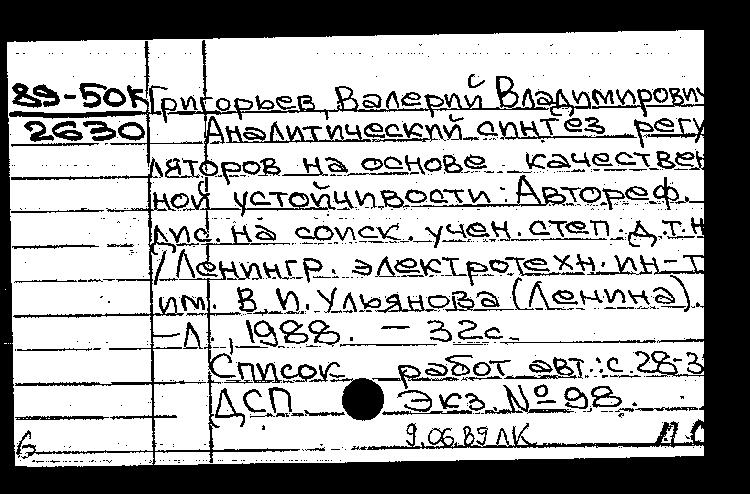 89-50К Григорьев, Валерий Владимирович
2630 Аналитический синтез регу
ляторов на основе качествен
ной устойчивости: Автореф.
дис. на соиск. учен. степ. д.т.н
/Ленингр. электротехн. ин-т
им. В.И. Ульянова (Ленина).
-Л., 1988. - 32с.
Список работ авт.: с. 28-3
ДСП. Экз. № 98.
6 9.06.89 ЛК